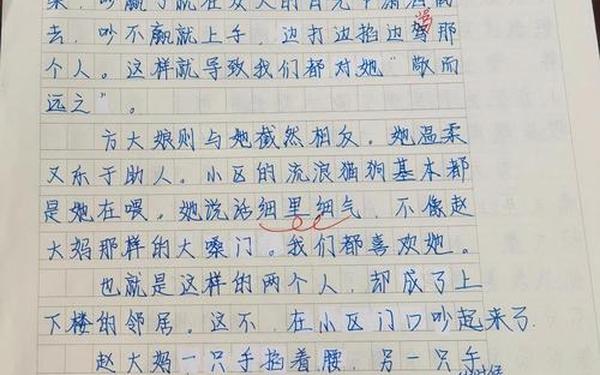 吵赢了就在众人的目光中潇洒离
去，吵不赢就上手，边打边掐边骂那
个人。这样就导致我们都对她“敬而
远之”。
方大娘则与她截然相反。她温柔
又乐于助人。小区的流浪猫狗基本都
是她在喂。她说话细里细气，不像赵
大妈那样的大嗓门。我们都喜欢她。
也就是这样的两个人，却成了上
下楼的邻居。这不，在小区门口吵起来了.
赵大妈一只手掐着腰，另一只手